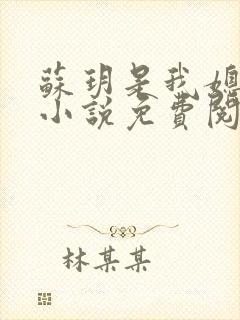 蘇玥是我媳
小說免費閱
林某某